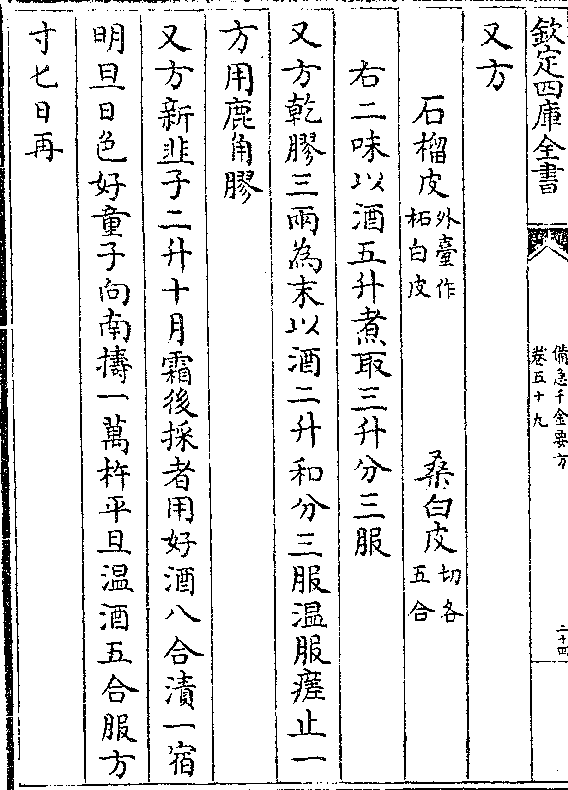 欽定四庫全書
備急千金要方
卷五十九
二十四
又方
石榴皮外臺作柘白皮 桑白皮切各五合
右二味以酒五升煮取三升分三服
又方乾膠三兩為末以酒二升和分三服温服瘥止一
方用鹿角膠
又方新韭子二升十月霜後採者用好酒八合漬一宿
明旦日色好童子向南擣一萬杵平旦温酒五合服方
寸匕日再